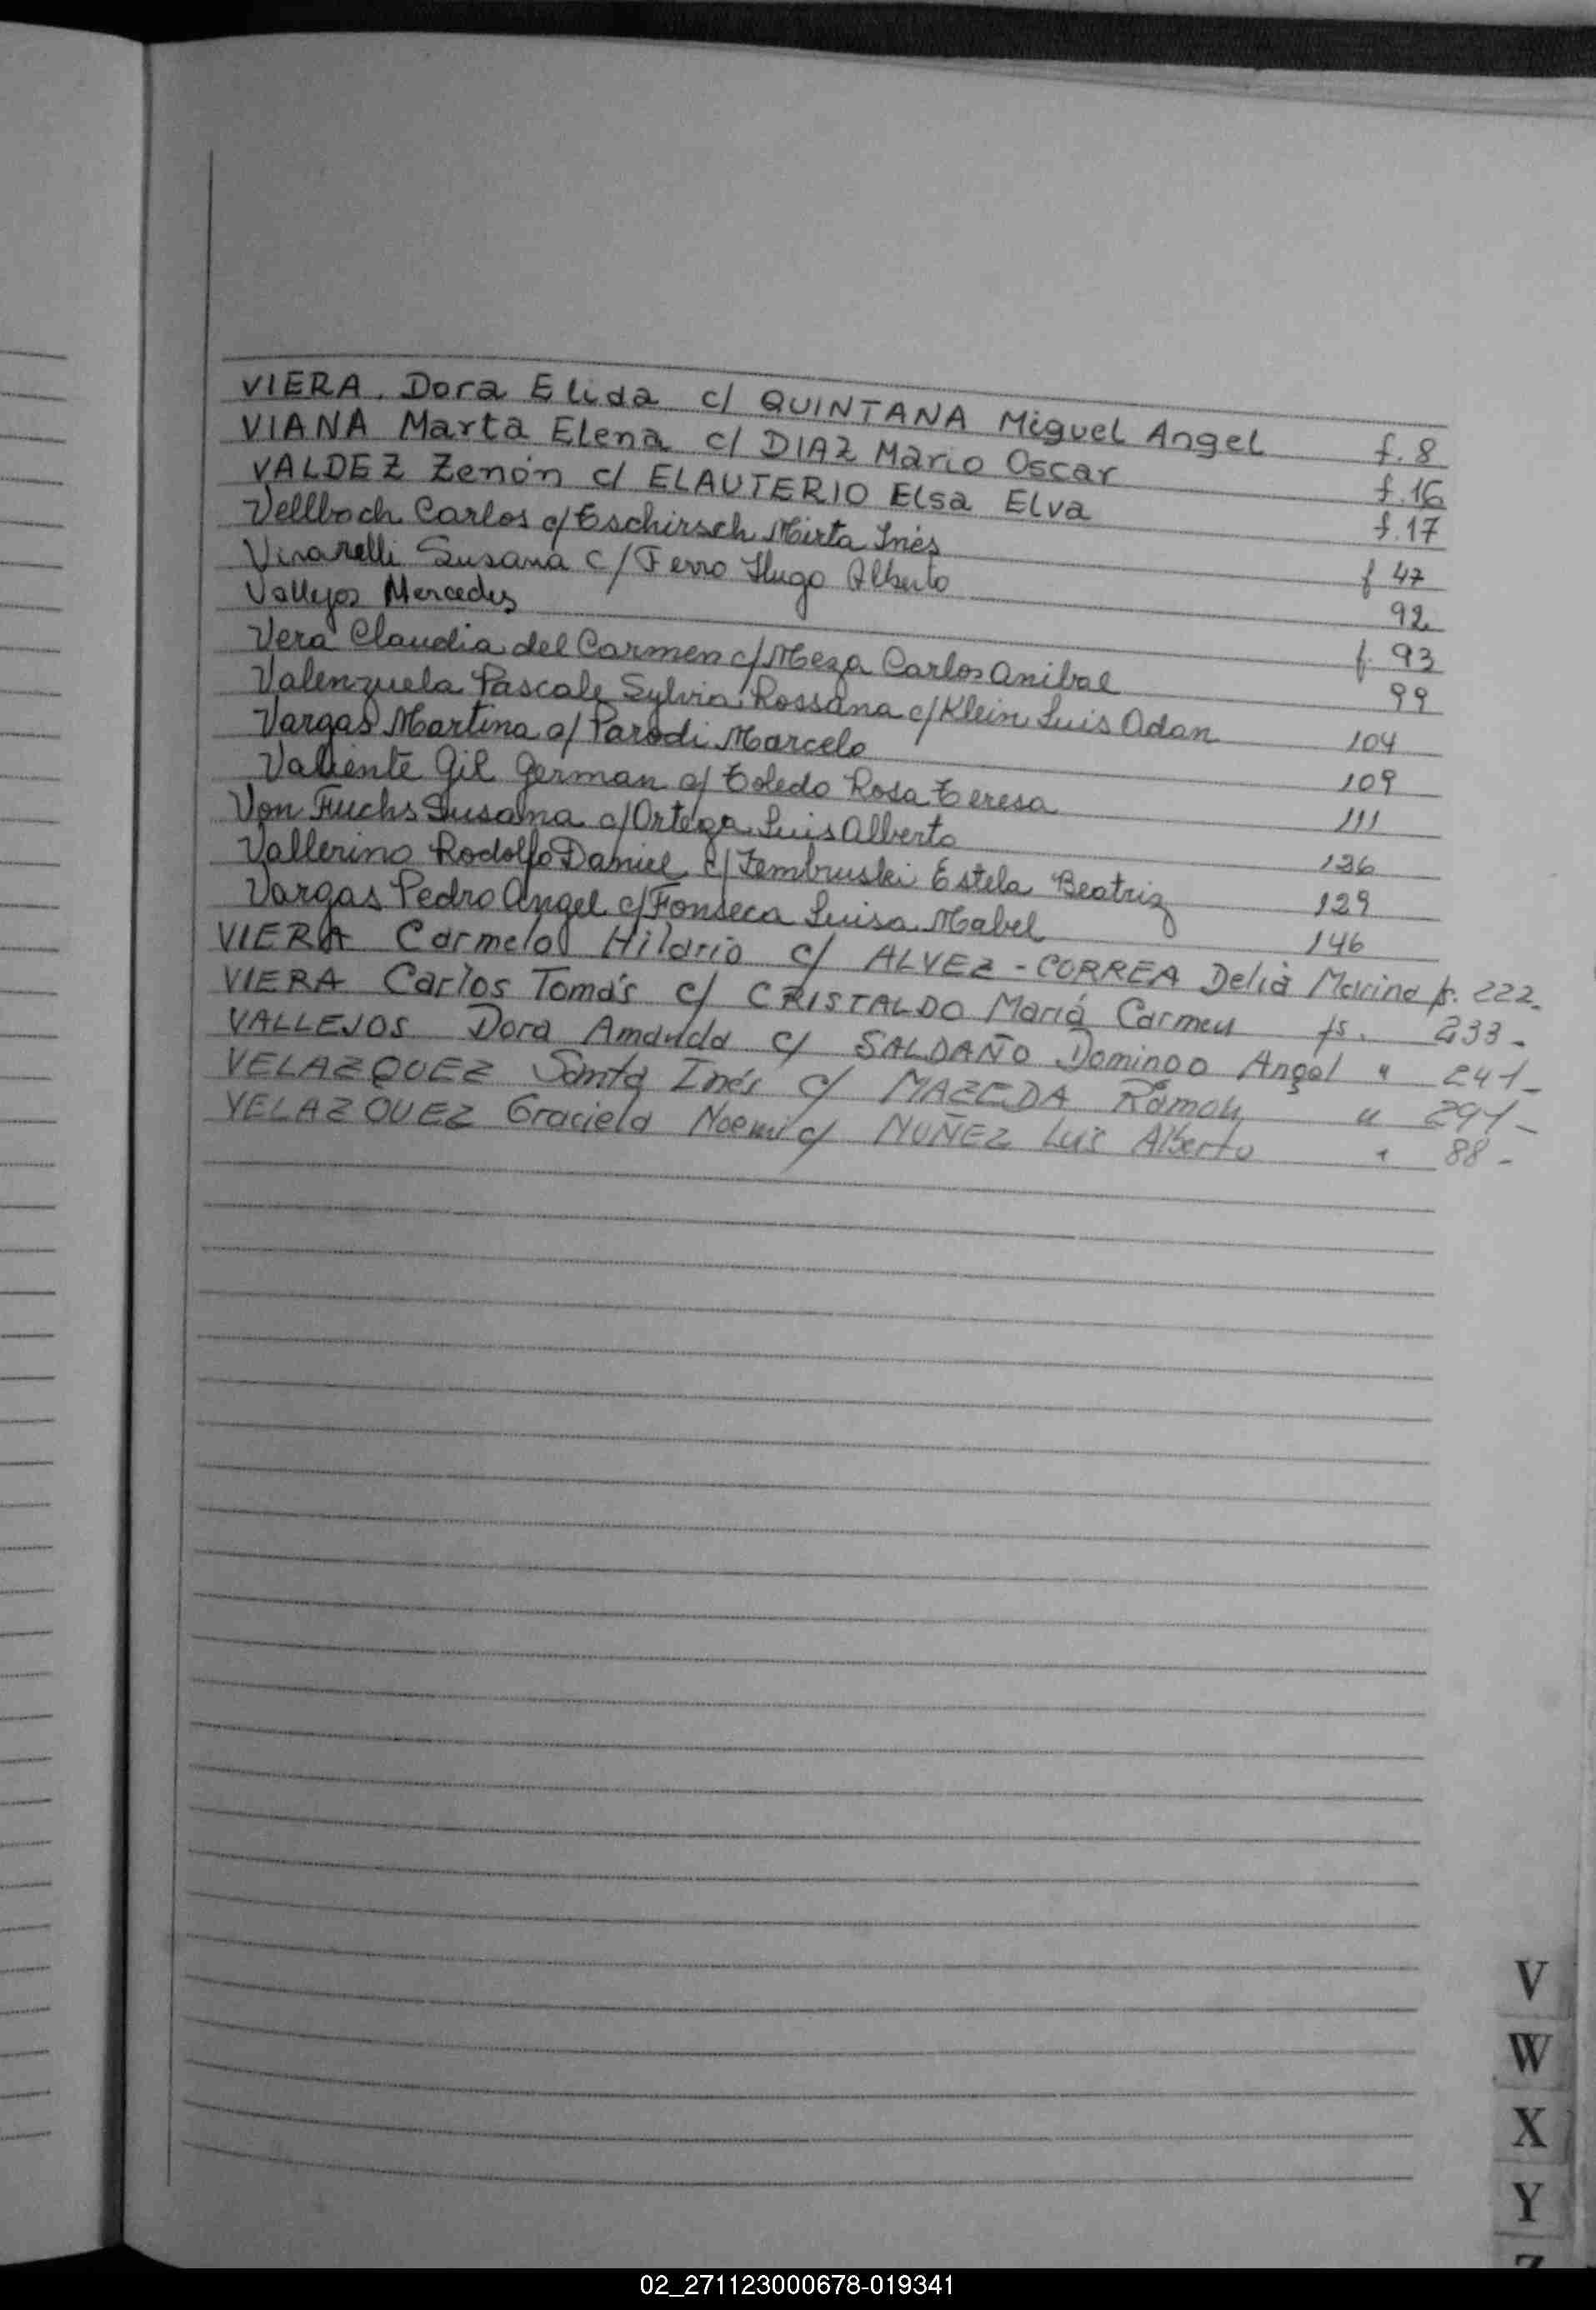 VIERA, Dora Elida c/ QUINTANA Miguel Angel f. 8
VIANA Marta Elena c/ DIAZ Mario Oscar f. 16
VALDEZ Zenón c/ ELAUTERIO Elsa Elva f. 17
Vellboch Carlos c/ Eschirsch Mirta Inés f 47
Vinarelli Susana c/ Ferro Hugo Alberto 92
Vallejos Mercedes f. 93
Vera Claudia del Carmen c/ Meza Carlos Anibal 99
Valenzuela Pascale Sylvia Rossana c/ Klein Luis Adan 104
Vargas Martina c/ Parodi Marcelo 109
Valiente Gil German c/ Toledo Rosa Teresa 111
Von Fuchs Susana c/ Ortega Luis Alberto 136
Vallerino Rodolfo Daniel c/ Zembruski Estela Beatriz 129
Vargas Pedro Angel c/ Fonseca Luisa Mabel 146
VIERA Carmelo Hilario c/ ALVEZ-CORREA Delia Marina fs. 222-
VIERA Carlos Tomás c/ CRISTALDO María Carmen fs. 233-
VALLEJOS Dora Amanda c/ SALDAÑO Domingo Angel " 241-
VELAZQUEZ Santa Inés c/ MAZEDA Ramón " 291-
VELAZQUEZ Graciela Noemí c/ NUÑEZ Luis Alberto " 88-
V
W
X
Y
Z
02_271123000678-019341